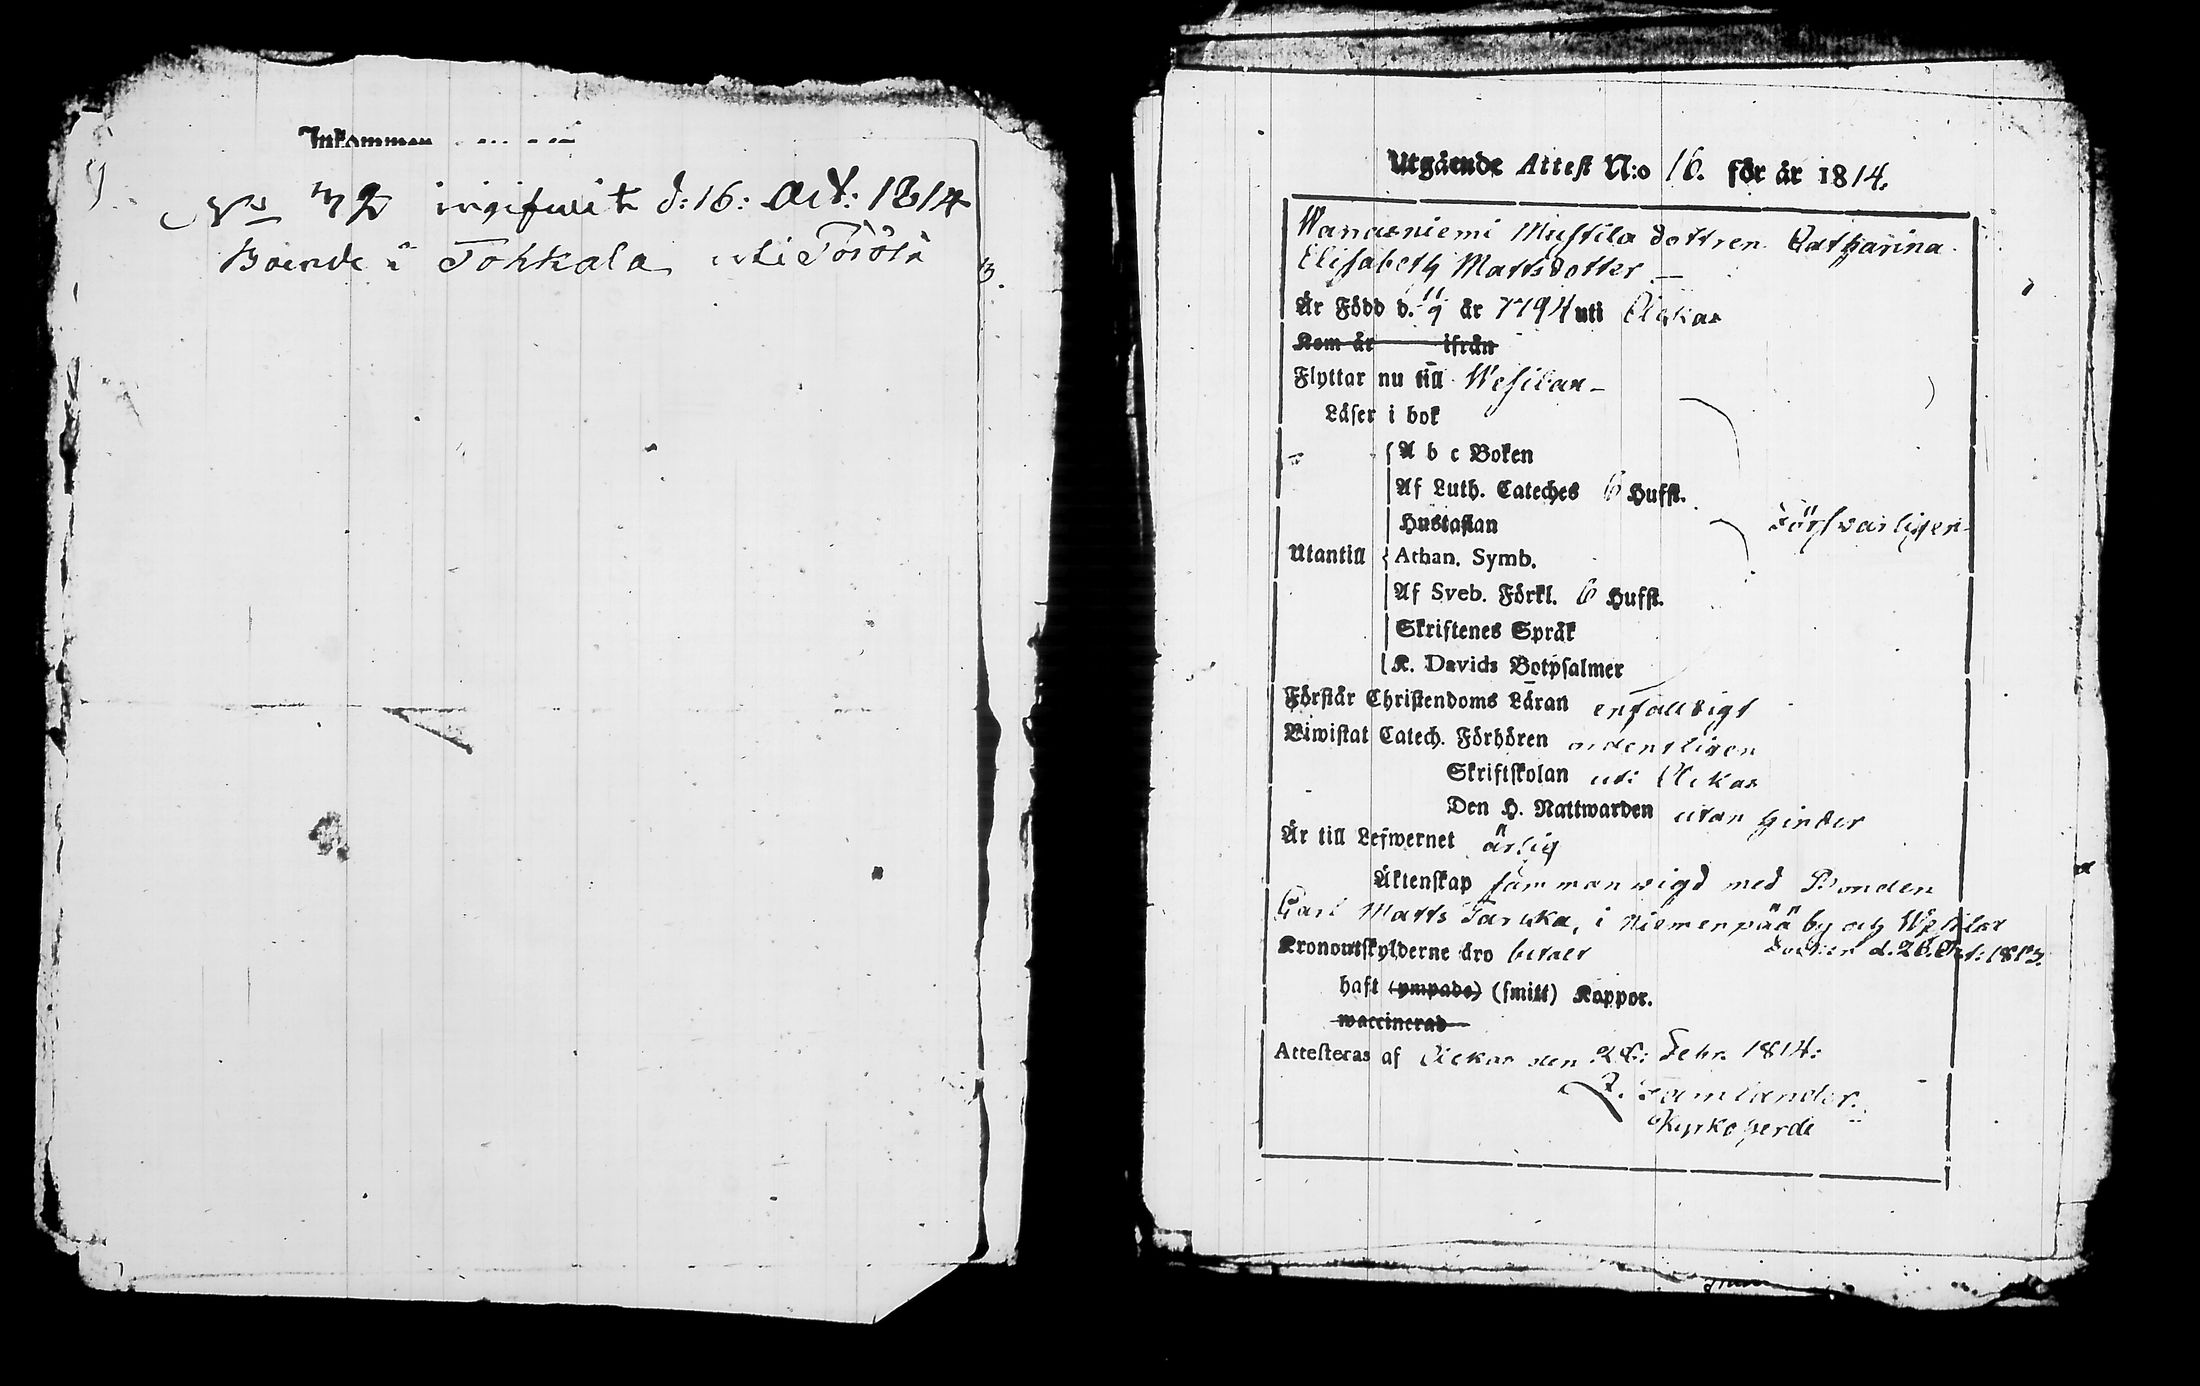 Inkommen
No 32 ingifwit d: 16: Oct: 1814
Boende i Tohkala uti Tösölä
Utgående Attest N:o 16. för år 1814.
Wanasniemi Mustila dottren Catharina
Elisabeth Mattsdotter
Är Född d. 11/9 år 1794 uti Ackas
Kom år ifrån
Flyttar nu till Wesilax
Läser i bok
A b c Boken
Af Luth. Cateches 6 Hufst.
Hustaflan
Försvarligen
Utantill
Athan. Symb.
Af Sveb. Förkl. 6 Hufst.
Skriftenes Språk
K. Davids Botpsalmer
Förstår Christendoms Läran enfaldigt
Biwistat Catech. Förhören ordentligen
Skriftskolan uti Ackas
Den H. Nattwarden utan hinder
Är till Lefwernet ärlig
Äktenskap samman wigd med Bonden
Carl Matts Taruka, i Niemenpää by och Wesilax
Socken d. 26. Oct: 1813.
Kronoutskylderne äro betalt
haft (ympade) (smitt) Koppor.
waccinerad
Attesteras af Ackas den 28: Febr. 1814:
Z. Famlander.
Kyrkoherde